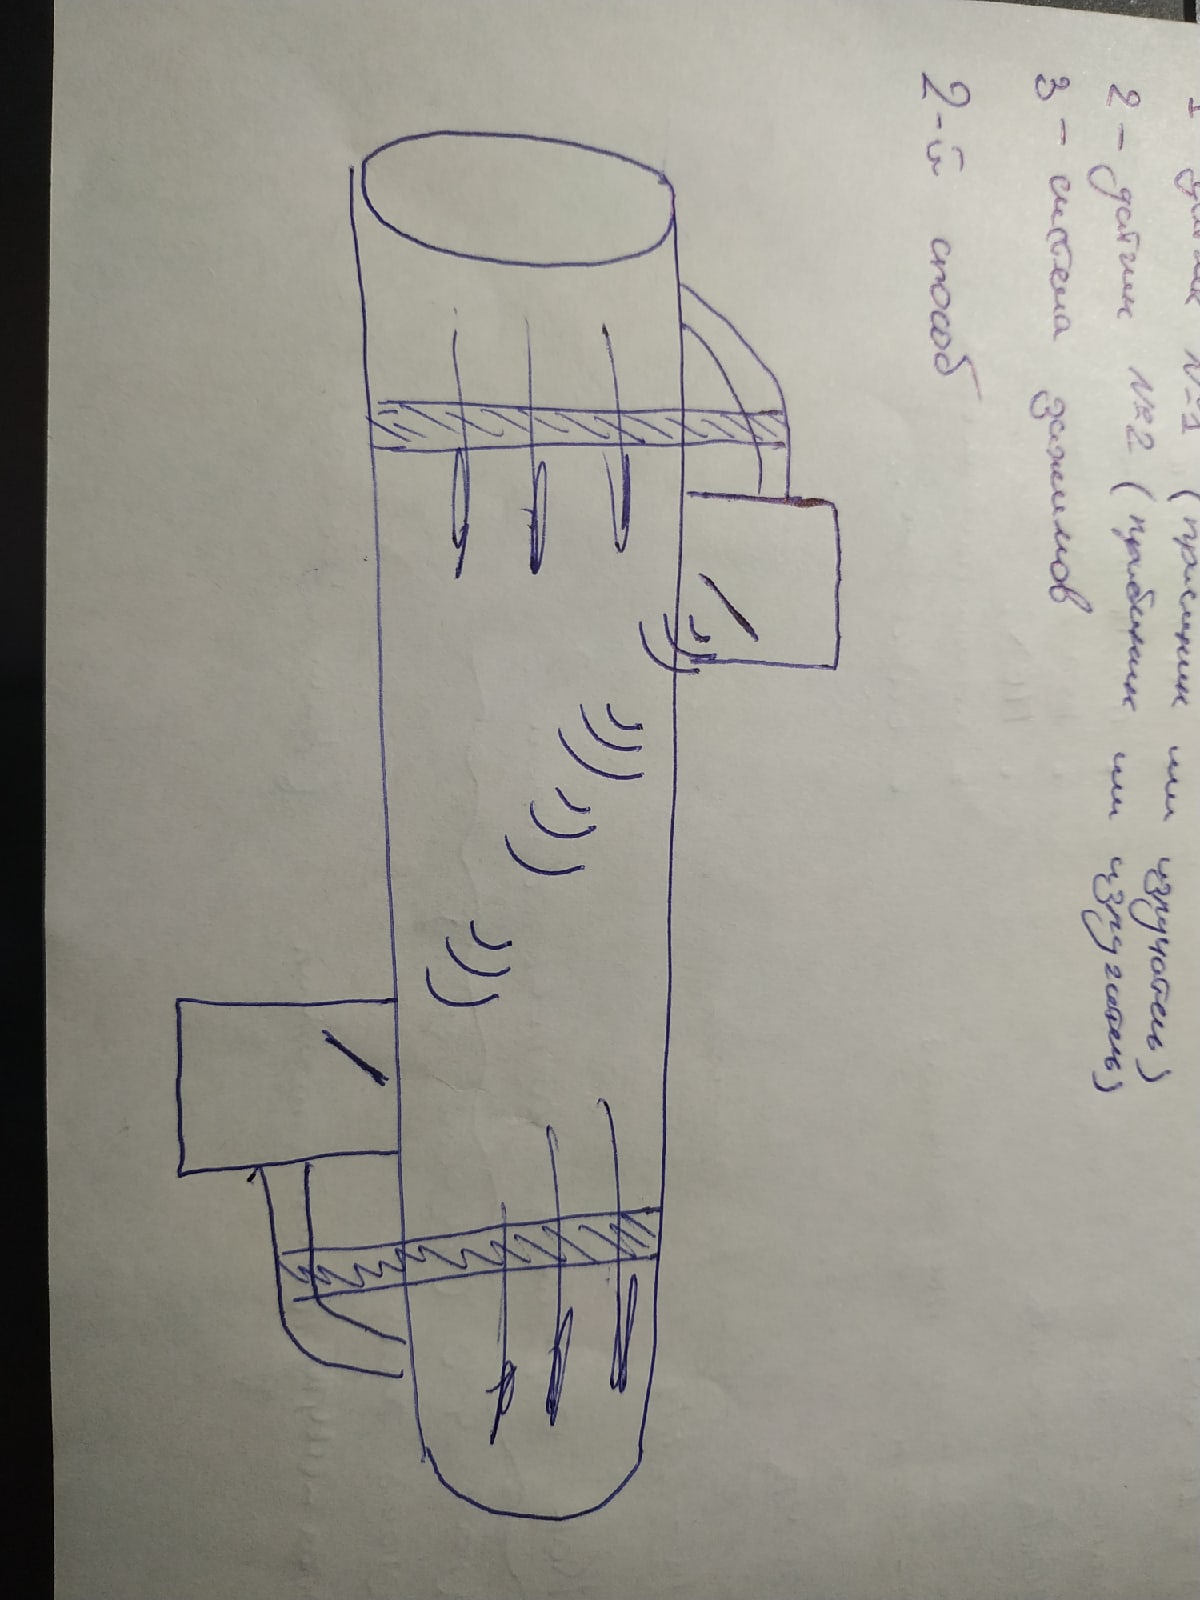 1 - датчик №1 (приемник или излучатель)
2 - датчик №2 (приемник или излучатель)
3 - система зажимов
2-й способ